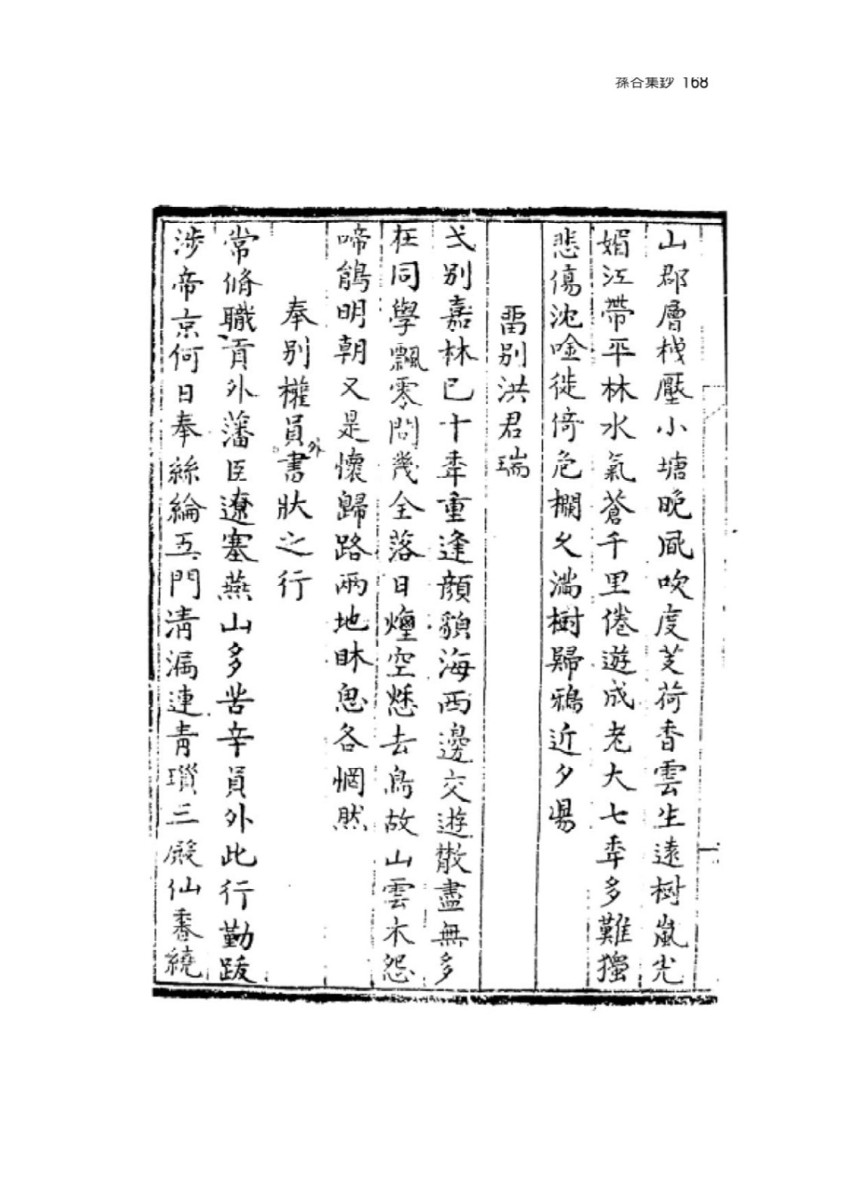 孫谷集鈔 168
山郡層棧壓小塘晚風吹度芰荷香雲生遠樹嵐光
媚江帶平林水氣蒼千里倦遊成老大七年多難獨
悲傷沈唫徙倚危欄久滿樹歸鴉近夕陽
畱別洪君瑞
弋別嘉林已十年重逢顏貌海西邊交遊散盡無多
在同學飄零問幾全落日煙空愁去鳥故山雲木怨
啼鵑明朝又是懷歸路兩地昧思各惘然
奉別權員外書狀之行
常脩職貢外藩臣遼塞燕山多苦辛員外此行勤跋
涉帝京何日奉絲綸五門淸漏連靑瑣三殿仙香繞